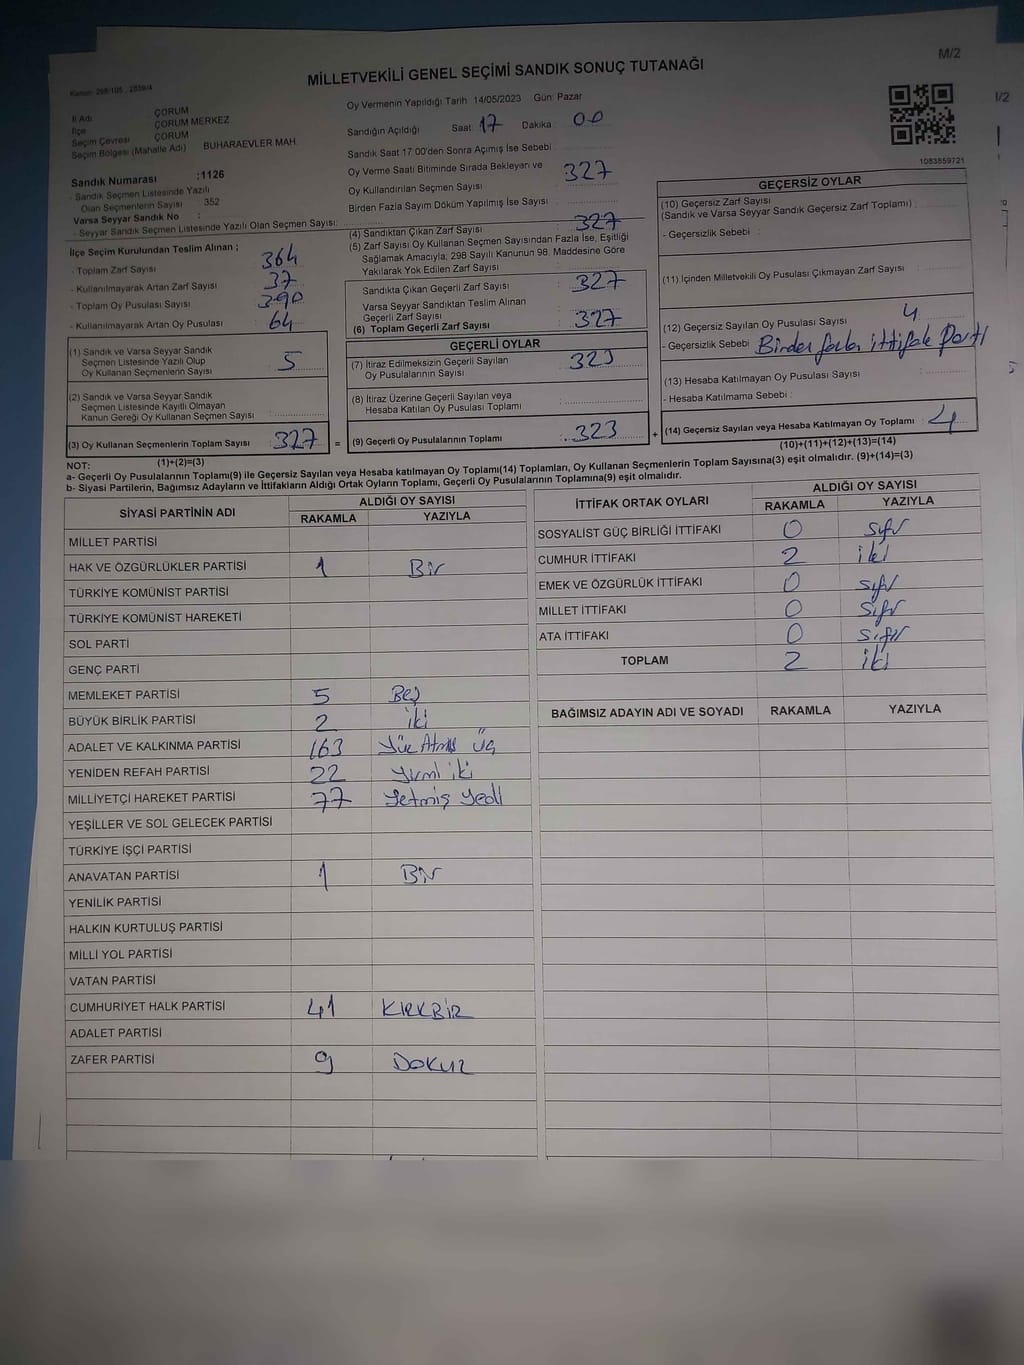 M/2
MİLLETVEKİLİ GENEL SEÇİMİ SANDIK SONUÇ TUTANAĞI
İl Adı ÇORUM
İlçe ÇORUM MERKEZ
Seçim Çevresi ÇORUM
Seçim Bölgesi (Mahalle Adı) BUHARAEVLER MAH.
Oy Vermenin Yapıldığı Tarih 14/05/2023 Gün: Pazar
Sandığın Açıldığı Saat: 17 Dakika: 00
Sandık Saat 17:00'den Sonra Açımış İse Sebebi :
Oy Verme Saati Bitiminde Sırada Bekleyen ve
Oy Kullandırılan Seçmen Sayısı : 327
Birden Fazla Sayım Döküm Yapılmış İse Sayısı :
1083859721
1/2
Sandık Numarası :1126
- Sandık Seçmen Listesinde Yazılı
Olan Seçmenlerin Sayısı : 352
Varsa Seyyar Sandık No :
- Seyyar Sandık Seçmen Listesinde Yazılı Olan Seçmen Sayısı:
İlçe Seçim Kurulundan Teslim Alınan ;
- Toplam Zarf Sayısı : 364
- Kullanılmayarak Artan Zarf Sayısı : 37
- Toplam Oy Pusulası Sayısı : 390
- Kullanılmayarak Artan Oy Pusulası : 64
(1) Sandık ve Varsa Seyyar Sandık
Seçmen Listesinde Yazılı Olup
Oy Kullanan Seçmenlerin Sayısı : 5
(2) Sandık ve Varsa Seyyar Sandık
Seçmen Listesinde Kayıtlı Olmayan
Kanun Gereği Oy Kullanan Seçmen Sayısı :
(3) Oy Kullanan Seçmenlerin Toplam Sayısı : 327 =
(1)+(2)=(3)
(4) Sandıktan Çıkan Zarf Sayısı : 327
(5) Zarf Sayısı Oy Kullanan Seçmen Sayısından Fazla İse, Eşitliği
Sağlamak Amacıyla, 298 Sayılı Kanunun 98. Maddesine Göre
Yakılarak Yok Edilen Zarf Sayısı :
Sandıkta Çıkan Geçerli Zarf Sayısı : 327
Varsa Seyyar Sandıktan Teslim Alınan
Geçerli Zarf Sayısı :
(6) Toplam Geçerli Zarf Sayısı : 327
GEÇERLİ OYLAR
(7) İtiraz Edilmeksizin Geçerli Sayılan
Oy Pusulalarının Sayısı : 323
(8) İtiraz Üzerine Geçerli Sayılan veya
Hesaba Katılan Oy Pusulası Toplamı :
(9) Geçerli Oy Pusulalarının Toplamı : 323 +
GEÇERSİZ OYLAR
(10) Geçersiz Zarf Sayısı
(Sandık ve Varsa Seyyar Sandık Geçersiz Zarf Toplamı) :
- Geçersizlik Sebebi :
(11) İçinden Milletvekili Oy Pusulası Çıkmayan Zarf Sayısı :
(12) Geçersiz Sayılan Oy Pusulası Sayısı : 4
- Geçersizlik Sebebi : Birden fazla ittifak Parti
(13) Hesaba Katılmayan Oy Pusulası Sayısı :
- Hesaba Katılmama Sebebi :
(14) Geçersiz Sayılan veya Hesaba Katılmayan Oy Toplamı : 4
(10)+(11)+(12)+(13)=(14)
NOT:
a- Geçerli Oy Pusulalarının Toplamı(9) ile Geçersiz Sayılan veya Hesaba katılmayan Oy Toplamı(14) Toplamları, Oy Kullanan Seçmenlerin Toplam Sayısına(3) eşit olmalıdır. (9)+(14)=(3)
b- Siyasi Partilerin, Bağımsız Adayların ve İttifakların Aldığı Ortak Oyların Toplamı, Geçerli Oy Pusulalarının Toplamına(9) eşit olmalıdır.
SİYASİ PARTİNİN ADI ALDIĞI OY SAYISI
RAKAMLA YAZIYLA
MİLLET PARTİSİ
HAK VE ÖZGÜRLÜKLER PARTİSİ 1 Bir
TÜRKİYE KOMÜNİST PARTİSİ
TÜRKİYE KOMÜNİST HAREKETİ
SOL PARTİ
GENÇ PARTİ
MEMLEKET PARTİSİ 5 Beş
BÜYÜK BİRLİK PARTİSİ 2 iki
ADALET VE KALKINMA PARTİSİ 163 Yüz Atmış Üç
YENİDEN REFAH PARTİSİ 22 Yirmi iki
MİLLİYETÇİ HAREKET PARTİSİ 77 Yetmiş Yedi
YEŞİLLER VE SOL GELECEK PARTİSİ
TÜRKİYE İŞÇİ PARTİSİ
ANAVATAN PARTİSİ 1 Bir
YENİLİK PARTİSİ
HALKIN KURTULUŞ PARTİSİ
MİLLİ YOL PARTİSİ
VATAN PARTİSİ
CUMHURİYET HALK PARTİSİ 41 KIRKBİR
ADALET PARTİSİ
ZAFER PARTİSİ 9 DOKUZ
İTTİFAK ORTAK OYLARI ALDIĞI OY SAYISI
RAKAMLA YAZIYLA
SOSYALİST GÜÇ BİRLİĞİ İTTİFAKI 0 Sıfır
CUMHUR İTTİFAKI 2 iki
EMEK VE ÖZGÜRLÜK İTTİFAKI 0 Sıfır
MİLLET İTTİFAKI 0 Sıfır
ATA İTTİFAKI 0 Sıfır
TOPLAM 2 iki
BAĞIMSIZ ADAYIN ADI VE SOYADI RAKAMLA YAZIYLA